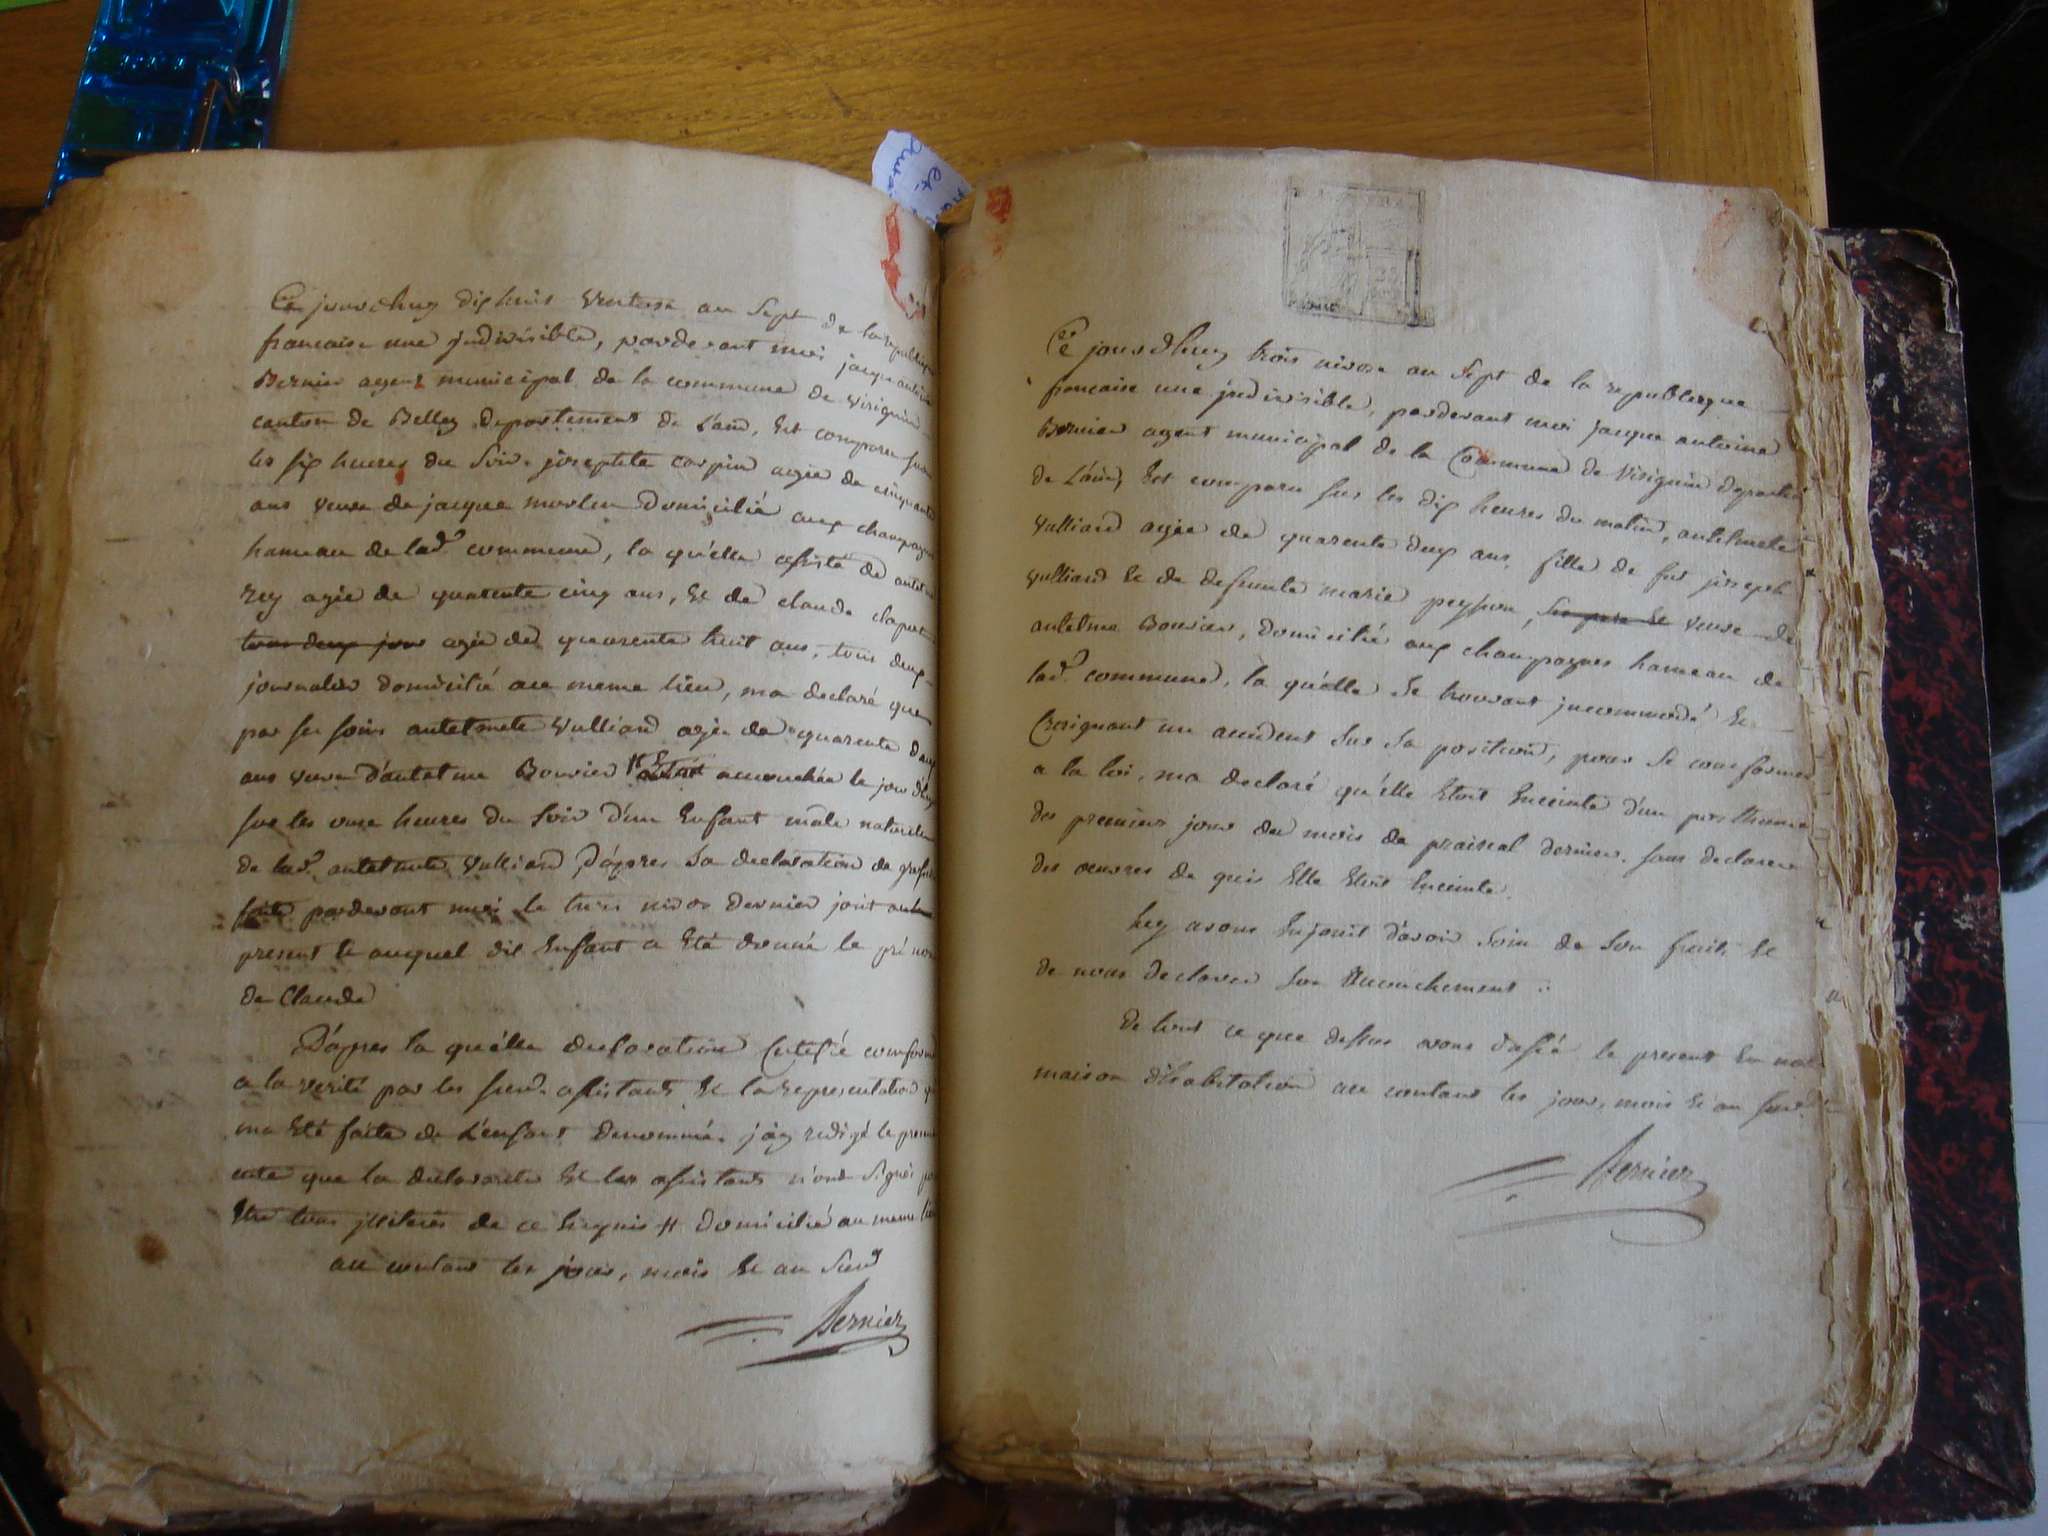 Ce jourdhuy dix huit ventose an sept de la republique
francaise une jndivisible, pardevant moi jacque antoine
Bernier agent municipal de la commune de virignin
canton de Belley departement de L'ain, Est comparu sur
les six heures du soir josephte carpin agée de cinquante
ans veuve de jacque morlin Domicilié aux champagnes
hameau de lad.e commune, la qu'elle assisté de antelme
rey agée de quarente cinq ans, Et de claude claput
tous deux jour agée de quarente huit ans, tous deux
journalier domicilié au meme lieu, ma declaré que
par ses soins antelmete vulliard agée de quarente deux
ans veuve d'antelme Bouvier accouchée le jourdhuy
sur les onze heures du soir d'un Enfant male naturelle
de lad.e antelmete vulliard D'apres sa declaration de
faite pardevant moi le trois nivose dernier joint
present & auquel dit Enfant a Eté donné le prénom
de Claude
D'apres la qu'elle declaration Certifié conforme
a la verité par les assistants Et la representation
ma Eté faite de L'enfant denommé. j'ay redigé le present
acte que la declarante Et les assistants n'ont signés
de ce Enquis # Domicilié au meme lieu
au contant les jour, mois Et an
Bernier
Ce jourdhuy trois nivose an sept de la republique
francaise une jndivisible, pardevant moi Jacque antoine
Bernier agent municipal de la Commune de virignin departem
de L'ain, Est comparu sur les dix heures du matin, antelmete
vulliard agée de quarente deux ans, fille de feu joseph
vulliard Et de defeunte marie peysson, veuve de
antelme Bouvier, domicilié aux champagnes hameau de
lad.e commune, la qu'elle se trouvant jncommodé Et
Creignant un accident sur sa position, pour se conformer
a la loi, ma declaré qu'elle Etoit Enceinte d'un posthume
des premiers jour du mois de prairial dernier. sans declarer
des oeuvres de quis Elle Etoit Enceinte.
Luy avons Enjoint d'avoir soin de son fruit Et
de nous declarer son accouchement .
De tout ce que dessus avons dressé le present En notre
maison d'habitation au contant les jour, mois Et an
Bernier